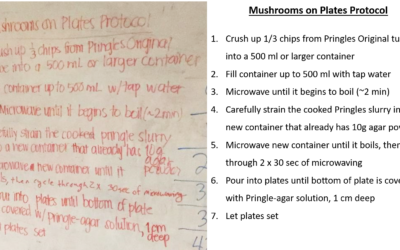 shrooms on Plates Protocol
ush up 1/3 chips from Pringles Original
into a 500 ml or larger container
container up to 500 ml w/ tap water
Microwave until it begins to boil (~2 min)
efully strain the cooked pringle slurry
o a new container that already has 10g
agar
powder
crowave new container until it
then cycle through 2 x 30 sec of microwaving
ur into plates until bottom of plate
covered w/ pringle-agar solution, 1 cm
deep
plates set
Mushrooms on Plates Protocol
1. Crush up 1/3 chips from Pringles Original tu
into a 500 ml or larger container
2. Fill container up to 500 ml with tap water
3. Microwave until it begins to boil (~2 min)
4. Carefully strain the cooked Pringles slurry in
new container that already has 10g agar pow
5. Microwave new container until it boils, then
through 2 x 30 sec of microwaving
6. Pour into plates until bottom of plate is cove
with Pringle-agar solution, 1 cm deep
7. Let plates set